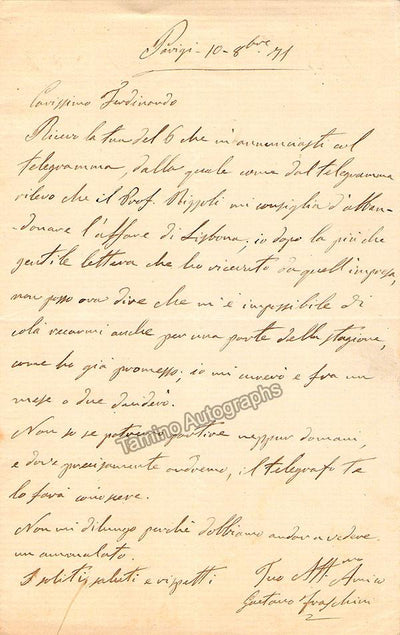 Parigi - 10 - 8bre 71
Carissimo Ferdinando
Ricevo la tua del 6 che m'annunciasti col
telegramma, dalla quale come dal telegramma
rilevo che il Prof. Rizzoli mi consiglia d'abban-
donare l'affare di Lisbona; io dopo la più che
gentile lettera che ho ricevuto da quell'impresa,
non posso ora dire che m'è impossibile di
colà recarmi anche per una parte della stagione,
come ho già promesso; io mi curerò e fra un
mese o due
Tamino Autographs
Non so se potremo partire neppur domani,
e dove precisamente andremo, il telegrafo te
lo farà conoscere.
Non mi dilungo perchè dobbiamo andar a vedere
un ammalato.
I soliti saluti e rispetti
Tuo Amico
Gaetano Fraschini